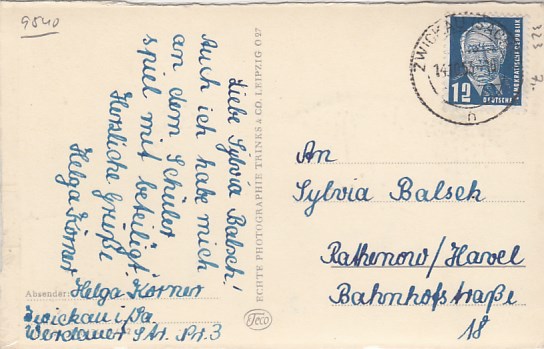 9540
Liebe Sylvia Balsch!
Auch ich habe mich
an dem Schüler
spiel mit beteiligt
Herzliche Grüße
Helga Körner
Absender:
Helga Körner
Zwickau i/Sa.
Werdauer Str. Nr. 3
ECHTE PHOTOGRAPHIE TRINKS & CO. LEIPZIG O 27
Teco
ZWICKAU
12
DEUTSCHE
DEMOKRATISCHE REPUBLIK
n
323
An
Sylvia Balsch
Rathenow/Havel
Bahnhofstraße
18